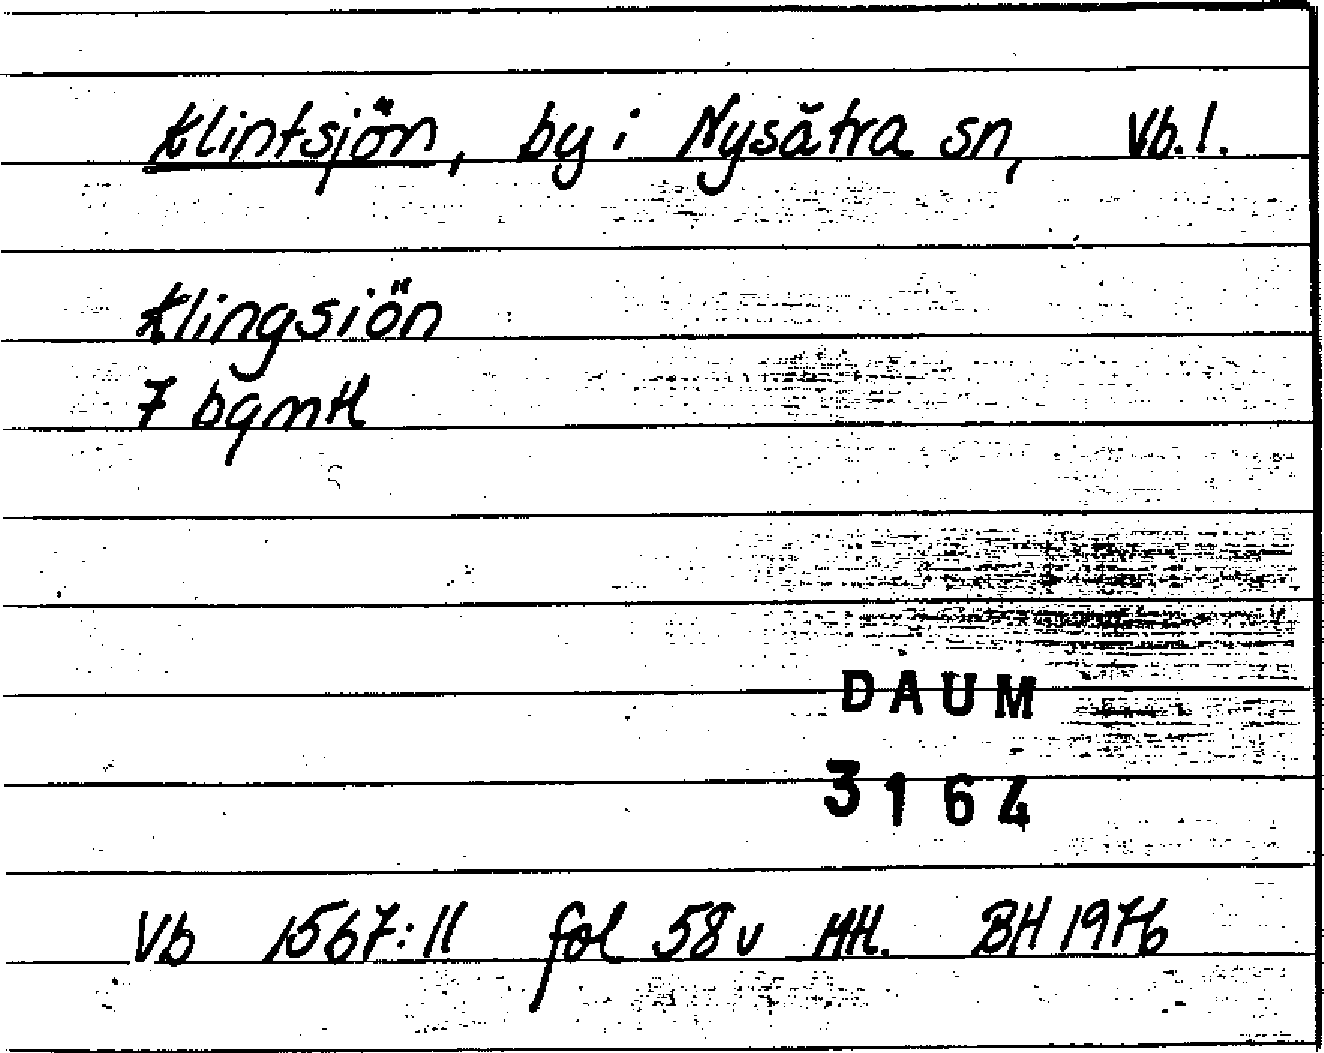 Klintsjön, by i Nysätra sn, Vb. l.
Klingsiön
7 bgmtl
DAUM
3164
Vb 1567:11 fol 58v MH. BH 1976